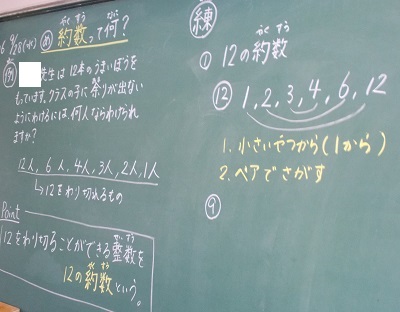 6 9/28(水) め 約数って何?
やくすう なに
例 先生は12本のうまいぼうを
もっています。クラスの子に余りが出ない
ようにわけるには、何人ならわけられ
ますか?
12人, 6人, 4人, 3人, 2人, 1人
↳12をわり切れるもの
Point
せいすう
12をわり切ることができる整数を
やくすう
12の約数という。
練
やくすう
① 12の約数
⑫ 1, 2, 3, 4, 6, 12
1. 小さいやつから(1から)
2. ペアでさがす
⑨